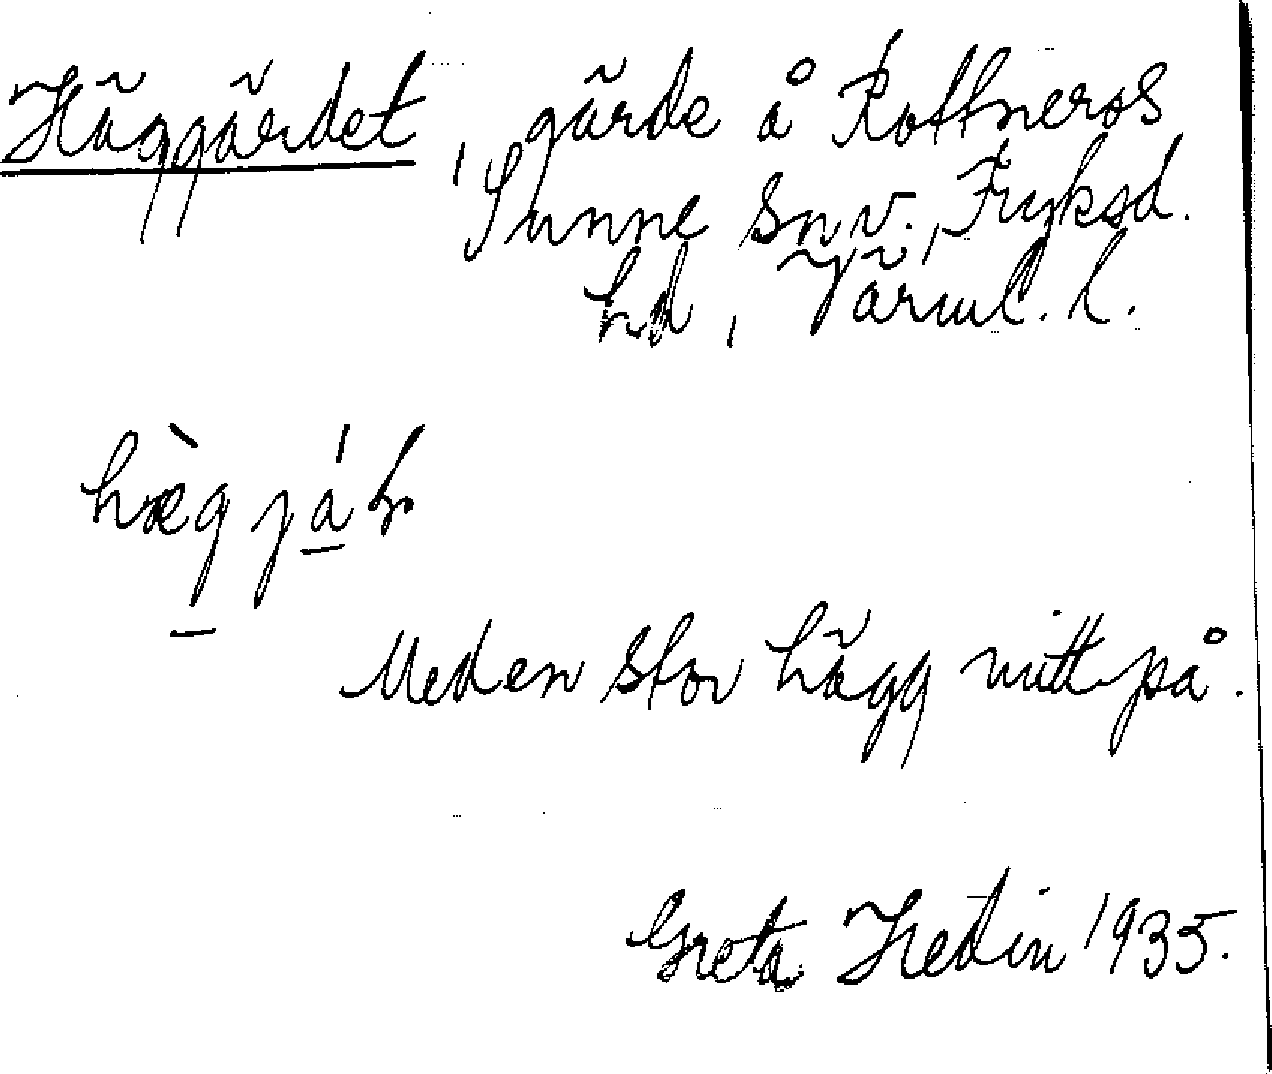 Häggärdet, gärde å Rottneros
Sunne sn v., Fryksd.
hd, Värml. l.
Med en stor hägg mitt på.
Greta Hedin 1935.